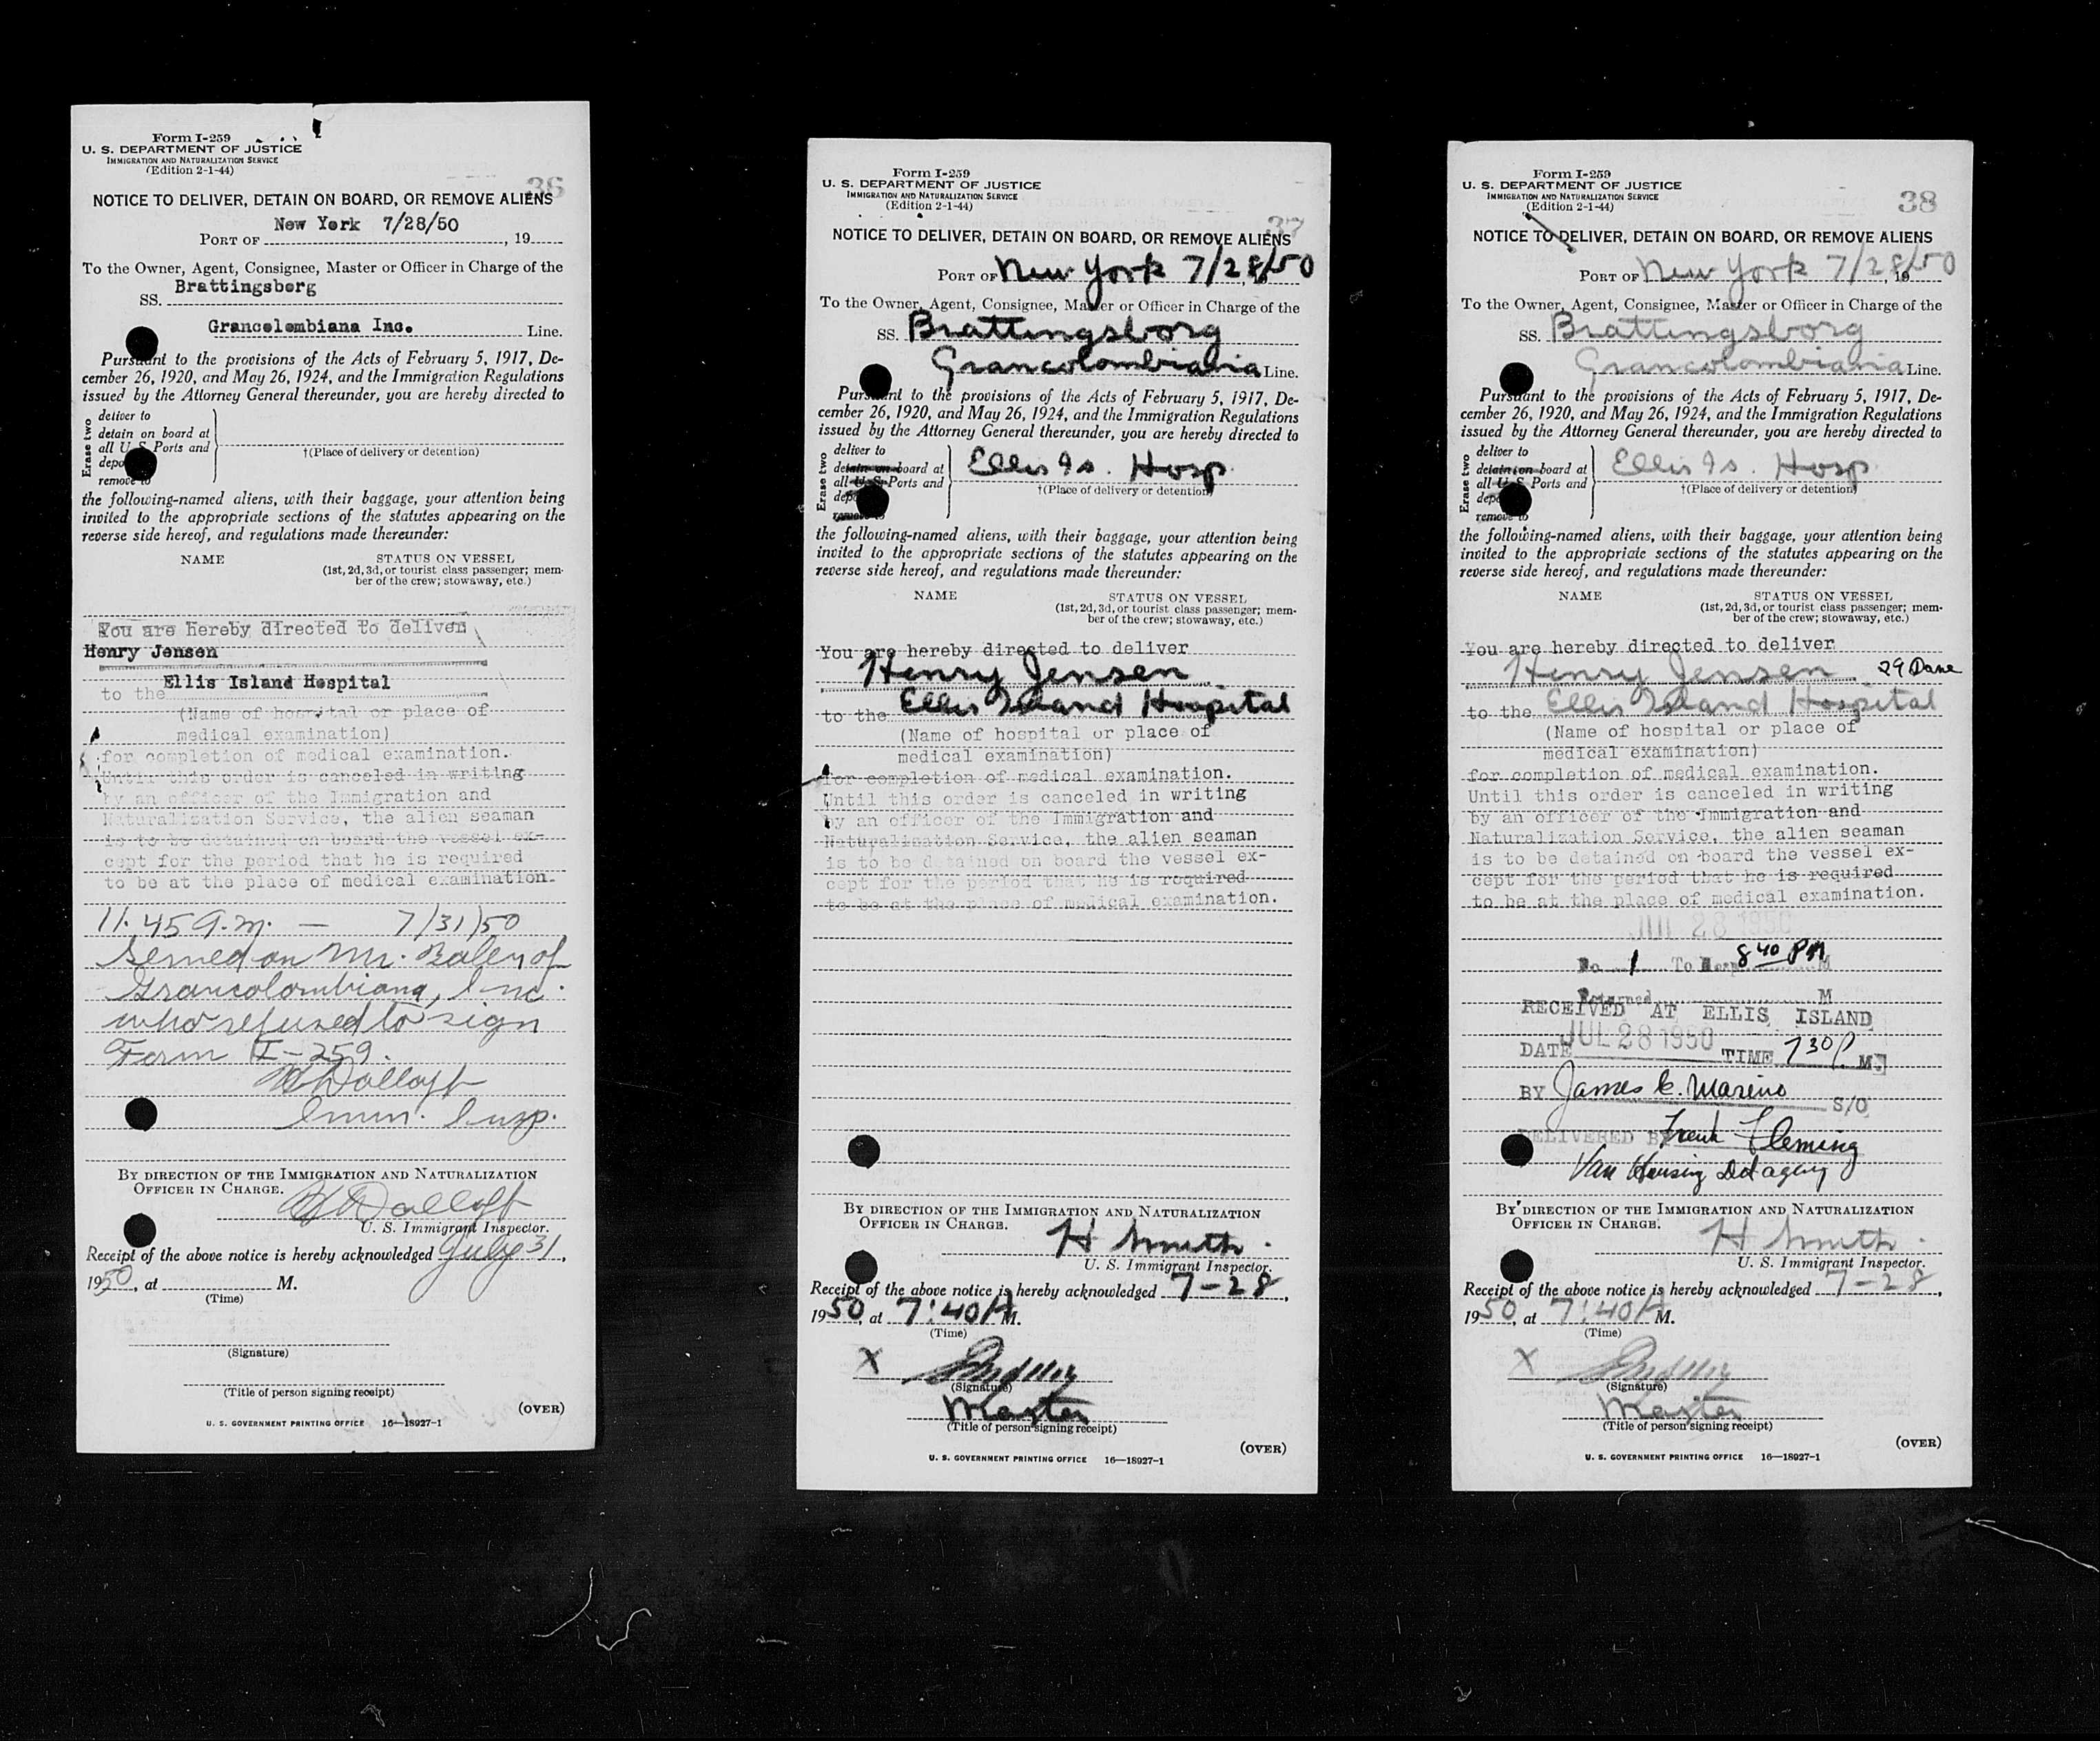 Form I-259
U. S. DEPARTMENT OF JUSTICE
IMMIGRATION AND NATURALIZATION SERVICE
(Edition 2-1-44)
36
NOTICE TO DELIVER, DETAIN ON BOARD, OR REMOVE ALIENS
New York 7/28/50
PORT OF , 19
To the Owner, Agent, Consignee, Master or Officer in Charge of the
Brattingsberg
SS.
Grancolombiana Inc. Line.
Pursuant to the provisions of the Acts of February 5, 1917, De-
cember 26, 1920, and May 26, 1924, and the Immigration Regulations
issued by the Attorney General thereunder, you are hereby directed to
Erase two
deliver to
detain on board at
all U. S. Ports and
depo
remove to
†(Place of delivery or detention)
the following-named aliens, with their baggage, your attention being
invited to the appropriate sections of the statutes appearing on the
reverse side hereof, and regulations made thereunder:
NAME STATUS ON VESSEL
(1st, 2d, 3d, or tourist class passenger; mem-
ber of the crew; stowaway, etc.)
You are hereby directed to deliver
Henry Jensen
Ellis Island Hospital
to the
(Name of hospital or place of
medical examination)
for completion of medical examination.
Until this order is canceled in writing
by an officer of the Immigration and
Naturalization Service, the alien seaman
is to be detained on board the vessel ex-
cept for the period that he is required
to be at the place of medical examination.
11.45 A.M. — 7/31/50
Served on Mr. Baley of
Grancolombiana, Inc.
who refused to sign
Form I-259.
Imm. Insp.
BY DIRECTION OF THE IMMIGRATION AND NATURALIZATION
OFFICER IN CHARGE.
U. S. Immigrant Inspector.
Receipt of the above notice is hereby acknowledged July 31,
1950, at M.
(Time)
(Signature)
(Title of person signing receipt)
(OVER)
U. S. GOVERNMENT PRINTING OFFICE 16—18927-1
Form I-259
U. S. DEPARTMENT OF JUSTICE
IMMIGRATION AND NATURALIZATION SERVICE
(Edition 2-1-44)
37
NOTICE TO DELIVER, DETAIN ON BOARD, OR REMOVE ALIENS
PORT OF New York 7/28/50
To the Owner, Agent, Consignee, Master or Officer in Charge of the
SS. Brattingsborg
Grancolombiana Line.
Pursuant to the provisions of the Acts of February 5, 1917, De-
cember 26, 1920, and May 26, 1924, and the Immigration Regulations
issued by the Attorney General thereunder, you are hereby directed to
Erase two
deliver to
detain on board at
all U. S. Ports and
depo
remove to
Ellis Is. Hosp.
†(Place of delivery or detention)
the following-named aliens, with their baggage, your attention being
invited to the appropriate sections of the statutes appearing on the
reverse side hereof, and regulations made thereunder:
NAME STATUS ON VESSEL
(1st, 2d, 3d, or tourist class passenger; mem-
ber of the crew; stowaway, etc.)
You are hereby directed to deliver
Henry Jensen
to the Ellis Island Hospital
(Name of hospital or place of
medical examination)
for completion of medical examination.
Until this order is canceled in writing
by an officer of the Immigration and
Naturalization Service, the alien seaman
is to be detained on board the vessel ex-
cept for the period that he is required
to be at the place of medical examination.
BY DIRECTION OF THE IMMIGRATION AND NATURALIZATION
OFFICER IN CHARGE.
H Smith
U. S. Immigrant Inspector.
Receipt of the above notice is hereby acknowledged 7-28,
1950, at 7:40 A M.
(Time)
X
(Signature)
Master
(Title of person signing receipt)
(OVER)
U. S. GOVERNMENT PRINTING OFFICE 16—18927-1
Form I-259
U. S. DEPARTMENT OF JUSTICE
IMMIGRATION AND NATURALIZATION SERVICE
(Edition 2-1-44)
38
NOTICE TO DELIVER, DETAIN ON BOARD, OR REMOVE ALIENS
PORT OF New York 7/28/50, 19
To the Owner, Agent, Consignee, Master or Officer in Charge of the
SS. Brattingsborg
Grancolombiana Line.
Pursuant to the provisions of the Acts of February 5, 1917, De-
cember 26, 1920, and May 26, 1924, and the Immigration Regulations
issued by the Attorney General thereunder, you are hereby directed to
Erase two
deliver to
detain on board at
all U. S. Ports and
depo
remove to
Ellis Is. Hosp.
†(Place of delivery or detention)
the following-named aliens, with their baggage, your attention being
invited to the appropriate sections of the statutes appearing on the
reverse side hereof, and regulations made thereunder:
NAME STATUS ON VESSEL
(1st, 2d, 3d, or tourist class passenger; mem-
ber of the crew; stowaway, etc.)
You are hereby directed to deliver
Henry Jensen 29 Dane
to the Ellis Island Hospital
(Name of hospital or place of
medical examination)
for completion of medical examination.
Until this order is canceled in writing
by an officer of the Immigration and
Naturalization Service, the alien seaman
is to be detained on board the vessel ex-
cept for the period that he is required
to be at the place of medical examination.
JUL 28 1950
No. 1 To Hosp 8 40 PM M
Returned M
RECEIVED AT ELLIS ISLAND
JUL 28 1950
DATE TIME 7 30 P. M.
BY James C. Marino S/O
DELIVERED BY Frank Fleming
BY DIRECTION OF THE IMMIGRATION AND NATURALIZATION
OFFICER IN CHARGE.
H Smith
U. S. Immigrant Inspector.
Receipt of the above notice is hereby acknowledged 7-28,
1950, at 7:40 A M.
(Time)
X
(Signature)
Master
(Title of person signing receipt)
(OVER)
U. S. GOVERNMENT PRINTING OFFICE 16—18927-1